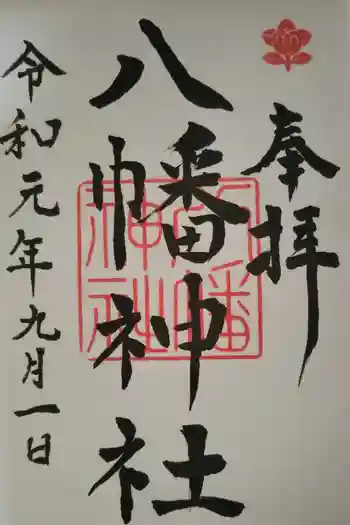 奉拝
八幡神社
令和元年九月一日
八幡神社